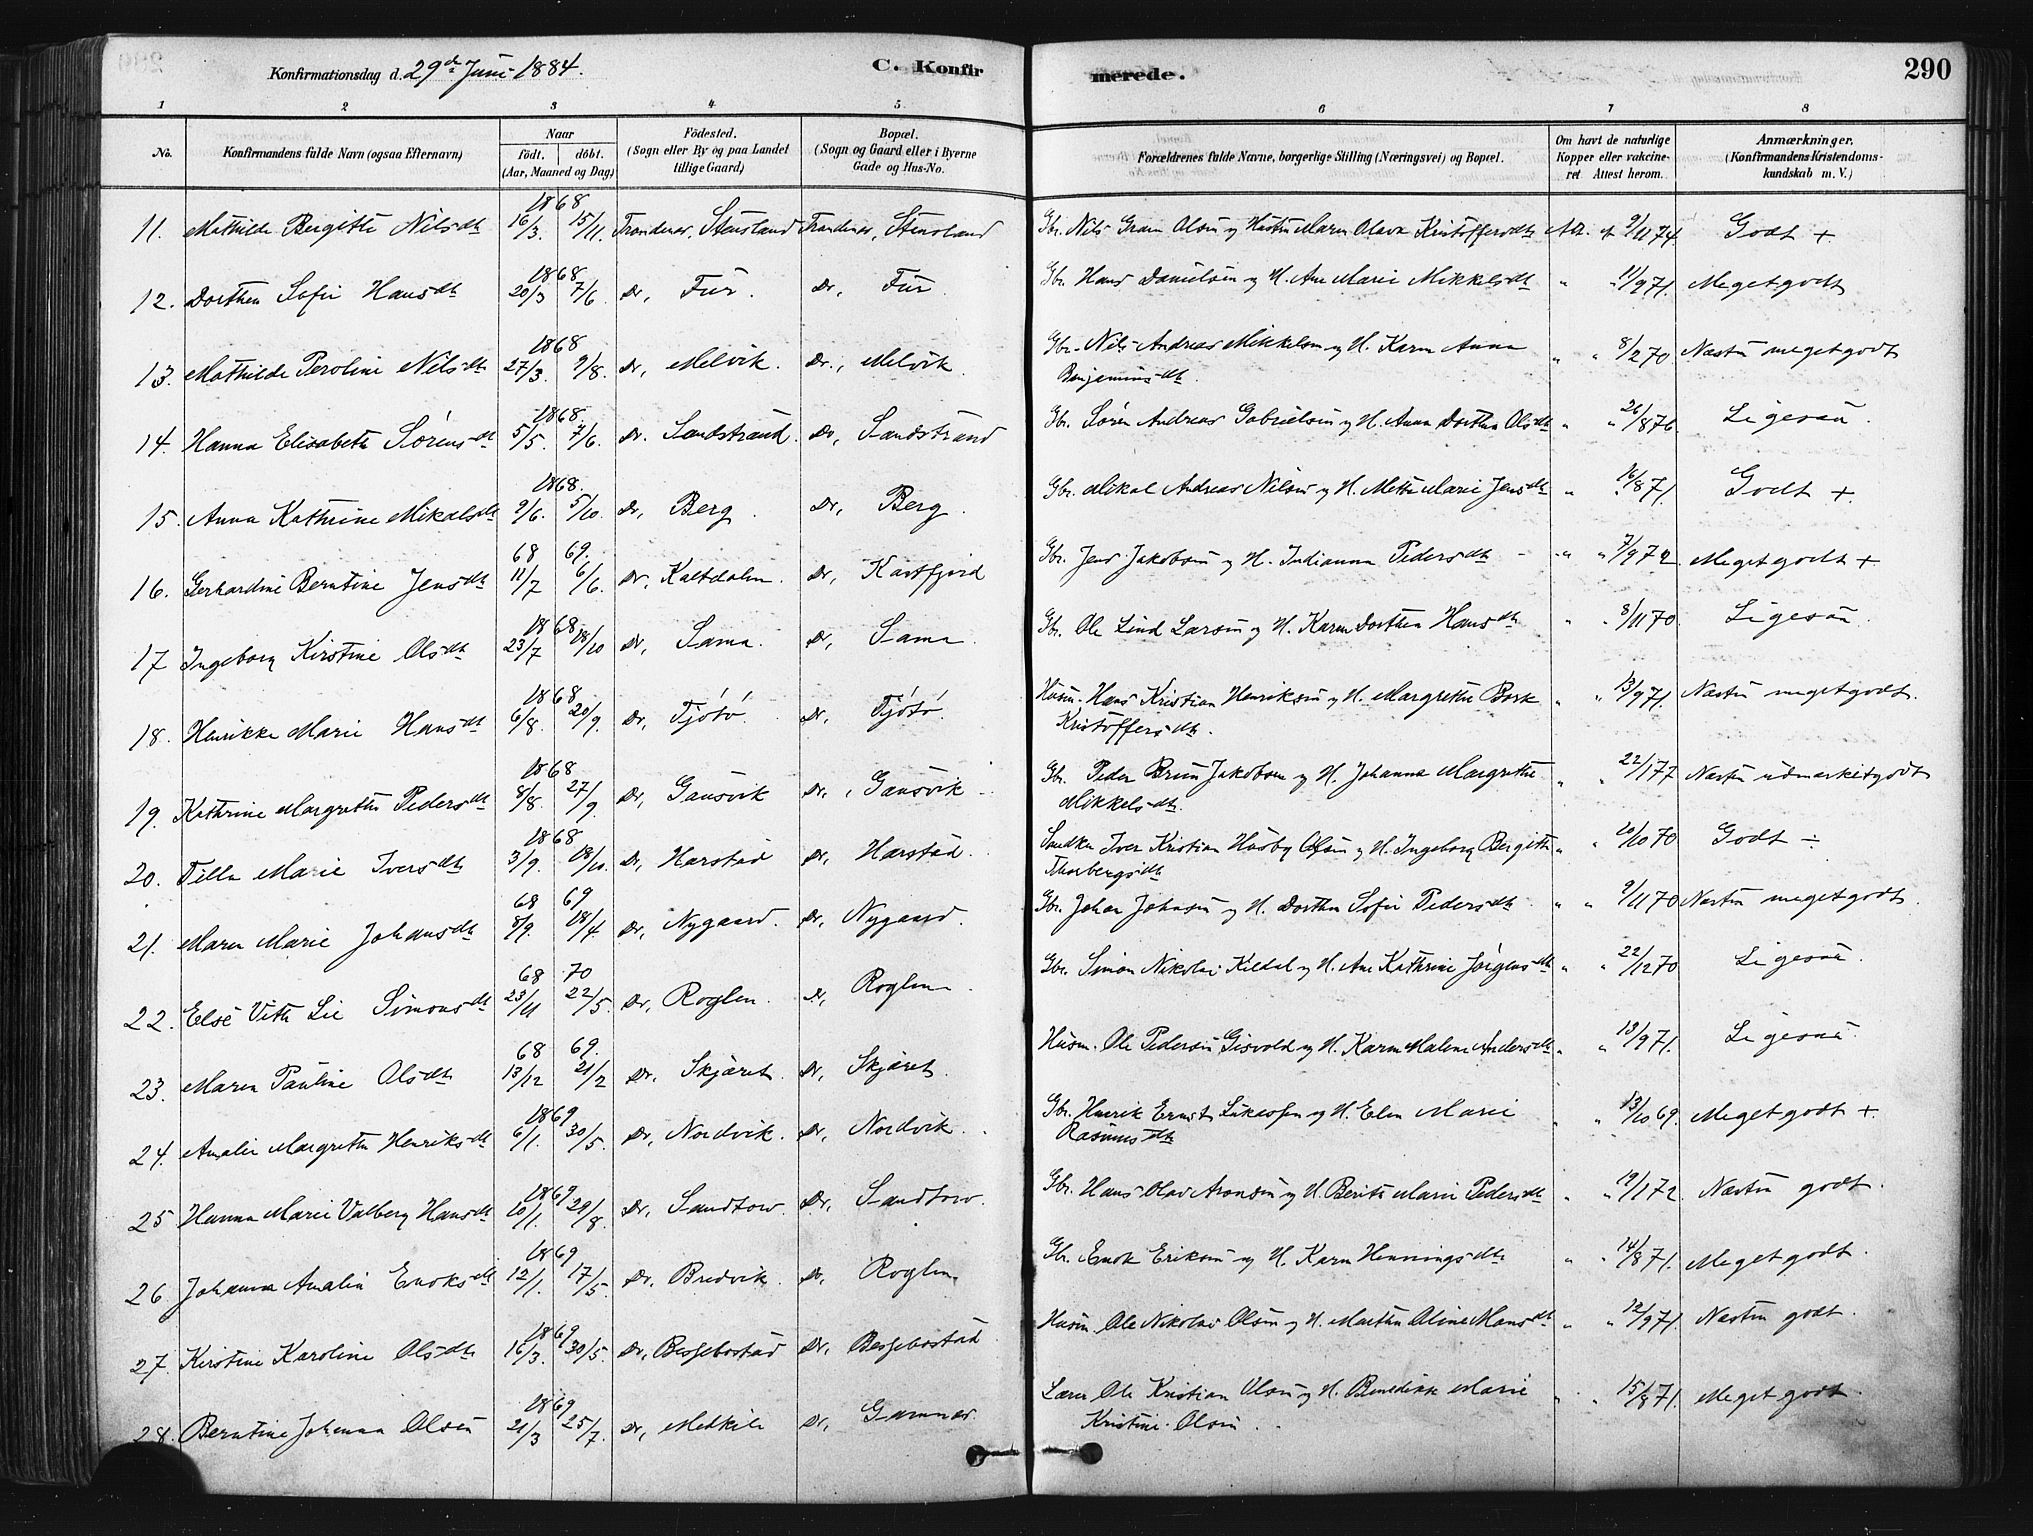 Konfirmationsdag d. 29de Juni 1884.
C. Konfirmerede.
290
1 2 3 4 5 6 7 8
No.
Konfirmandens fulde Navn (ogsaa Efternavn)
Naar
födt. döbt.
(Aar, Maaned og Dag)
Födested.
(Sogn eller By og paa Landet
tillige Gaard)
Bopæl.
(Sogn og Gaard eller i Byerne
Gade og Hus-No.
Forældrenes fulde Navne, borgerlige Stilling (Næringsvei) og Bopæl.
Om havt de naturlige
Kopper eller vakcine-
ret Attest herom.
Anmærkninger,
(Konfirmandens Kristendoms-
kundskab m. V.)
11. Mathilde Bergitte Nilsdtr 1868 16/3. 15/11. Trondenes, Stensland Trondenes, Stensland Gbr. Nils Gram Olsen og Hustru Maren Olava Kristoffersdtr Att. af 9/11 74 Godt +
12. Dorthea Sofie Hansdtr 1868 20/3 7/6. Do, Fur. Do, Fur. Gbr. Hans Danielsen og H. Ane Marie Mikkelsdtr " " 11/9 71. Meget godt
13. Mathilde Peroline Nilsdtr 1868 27/3. 9/8. Do, Melvik. Do., Melvik. Gbr. Nils Andreas Mikkelsen og H. Karen Anna
Benjaminsdtr. " " 8/2 70. Næsten meget godt
14. Hanna Elisabeth Sörensdtr 1868. 5/5. 7/6. Do. Sandstrand. Do, Sandstrand Gbr. Sören Andreas Gabrielsen og H. Anna Dorthea Olsdtr " " 26/8 76. Ligesaa.
15. Anna Kathrine Mikalsdtr 1868. 9/6. 5/10. Do, Berg. Do, Berg. Gbr. Mikal Andreas Nilsen og H. Mette Marie Jensdtr " " 16/8 71. Godt +.
16. Gerhardine Berntine Jensdtr 68 69. 11/7 6/6. Do, Kaltdalen. Do, Kasfjord Gbr. Jens Jakobsen og H. Indianna Pedersdtr " " 7/9 72. Meget godt +
17 Ingeborg Kirstine Olsdtr 1868 23/7 18/10 Do, Sama. Do, Sama. Gbr. Ole Lind Larsen og H. Karen Dorthea Hansdtr " " 8/11 70. Ligesaa.
18. Henrikke Marie Hansdtr 1868 6/8. 20/9. Do, Tjötö. Do, Tjötö. Husm. Hans Kristian Henriksen og H. Margrethe Bork
Kristoffersdtr. " " 13/9 71. Næsten meget godt.
19. Kathrine Margrethe Pedersdtr 1868 8/8. 27/9. Do, Gausvik Do., Gausvik Gbr. Peder Brun Jakobsen og H. Johanna Margrethe
Mikkelsdtr. " " 22/1 77 Næsten udmærket godt
20. Tilla Marie Iversdtr 1868 3/9. 18/10. Do, Harstad Do, Harstad. Iver Kristian Husby Olsen og H. Ingeborg Bergitte
Thorbergsdtr " " 10/10 70 Godt ÷
21. Maren Marie Johansdtr 68 69 8/9. 18/4. Do, Nygaard. Do, Nygaard. Gbr. Johan Johnsen og H. Dorthea Sofie Pedersdtr " " 9/11 70 Næsten meget godt.
22. Else Vite Lie Simonsdtr 68 70 23/11 22/5. Do, Roglen. Do, Roglen Gbr. Simon Nikolai Kildal og H. Ane Kathrine Jörgensdtr " " 22/12 70 Ligesaa.
23. Maren Pauline Olsdtr 68 69. 13/12 21/2 Do, Skjæret. Do, Skjæret. Husm. Ole Pedersen Gisvold og H. Karen Malene Andersdtr " " 13/9 71. Ligesaa.
24. Amalie Margrethe Henriksdtr 1869 6/1. 30/5. Do, Nordvik. Do, Nordvik. Gbr. Henrik Ernst og H. Elen Marie
Rasmusdtr " " 13/10 69. Meget godt +.
25 Hanna Marie Valberg Hansdtr 1869 10/1. 29/8. Do, Sandtorv. Do, Sandtorv. Gbr. Hans Olav Aronsen og H. Berit Marie Pedersdtr " " 19/1 72 Næsten godt.
26 Johanna Amalia Enoksdtr 1869 12/1. 17/5. Do. Bredvik. Do, Roglen. Gbr. Enok Eriksen og H. Karen Henningsdtr " " 14/8 71. Meget godt.
27. Kirstine Karoline Olsdtr 1869 16/3. 30/5. Do, Bergebostad Do. Bergebostad Husm. Ole Nikolai Olsen og H. Marthe Oline Hansdtr " " 12/9 71. Næsten godt.
28. Berntine Johanna Olsen 1869 21/3 25/7. Do, Medkile Do, Gamnes. Lærer Ole Kristian Olsen og H. Benedikte Marie
Kristine Olsen. " " 15/8 71. Meget godt.